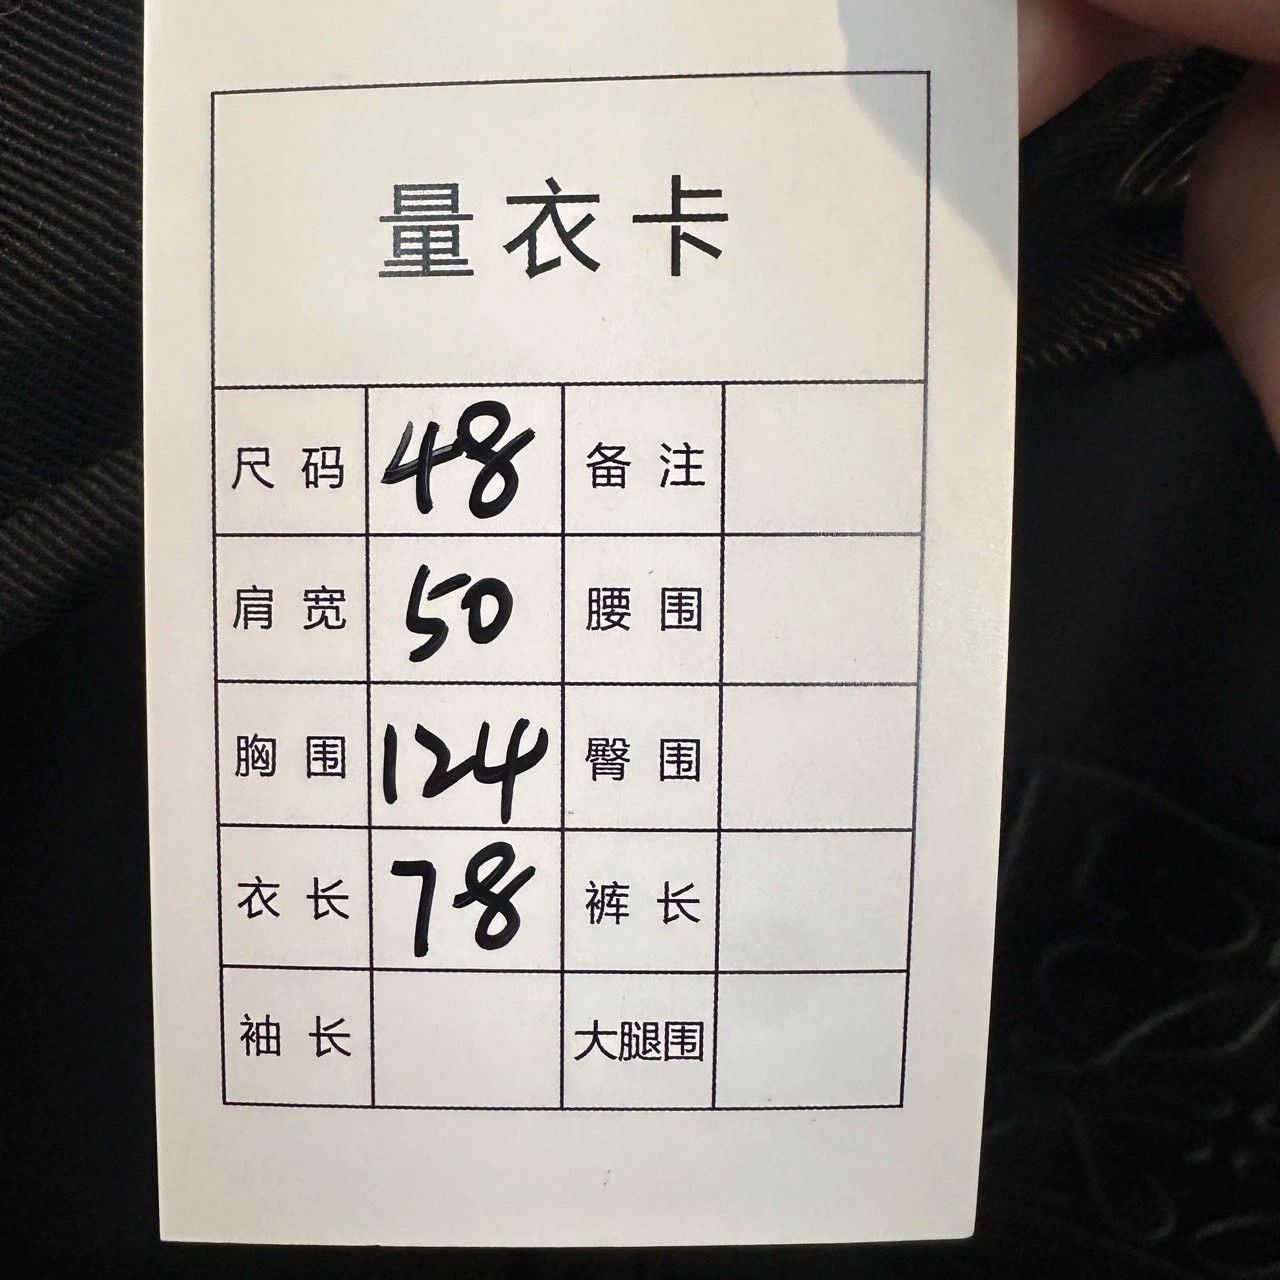 量衣卡
尺码 48 备注
肩宽 50 腰围
胸围 124 臀围
衣长 78 裤长
袖长 大腿围